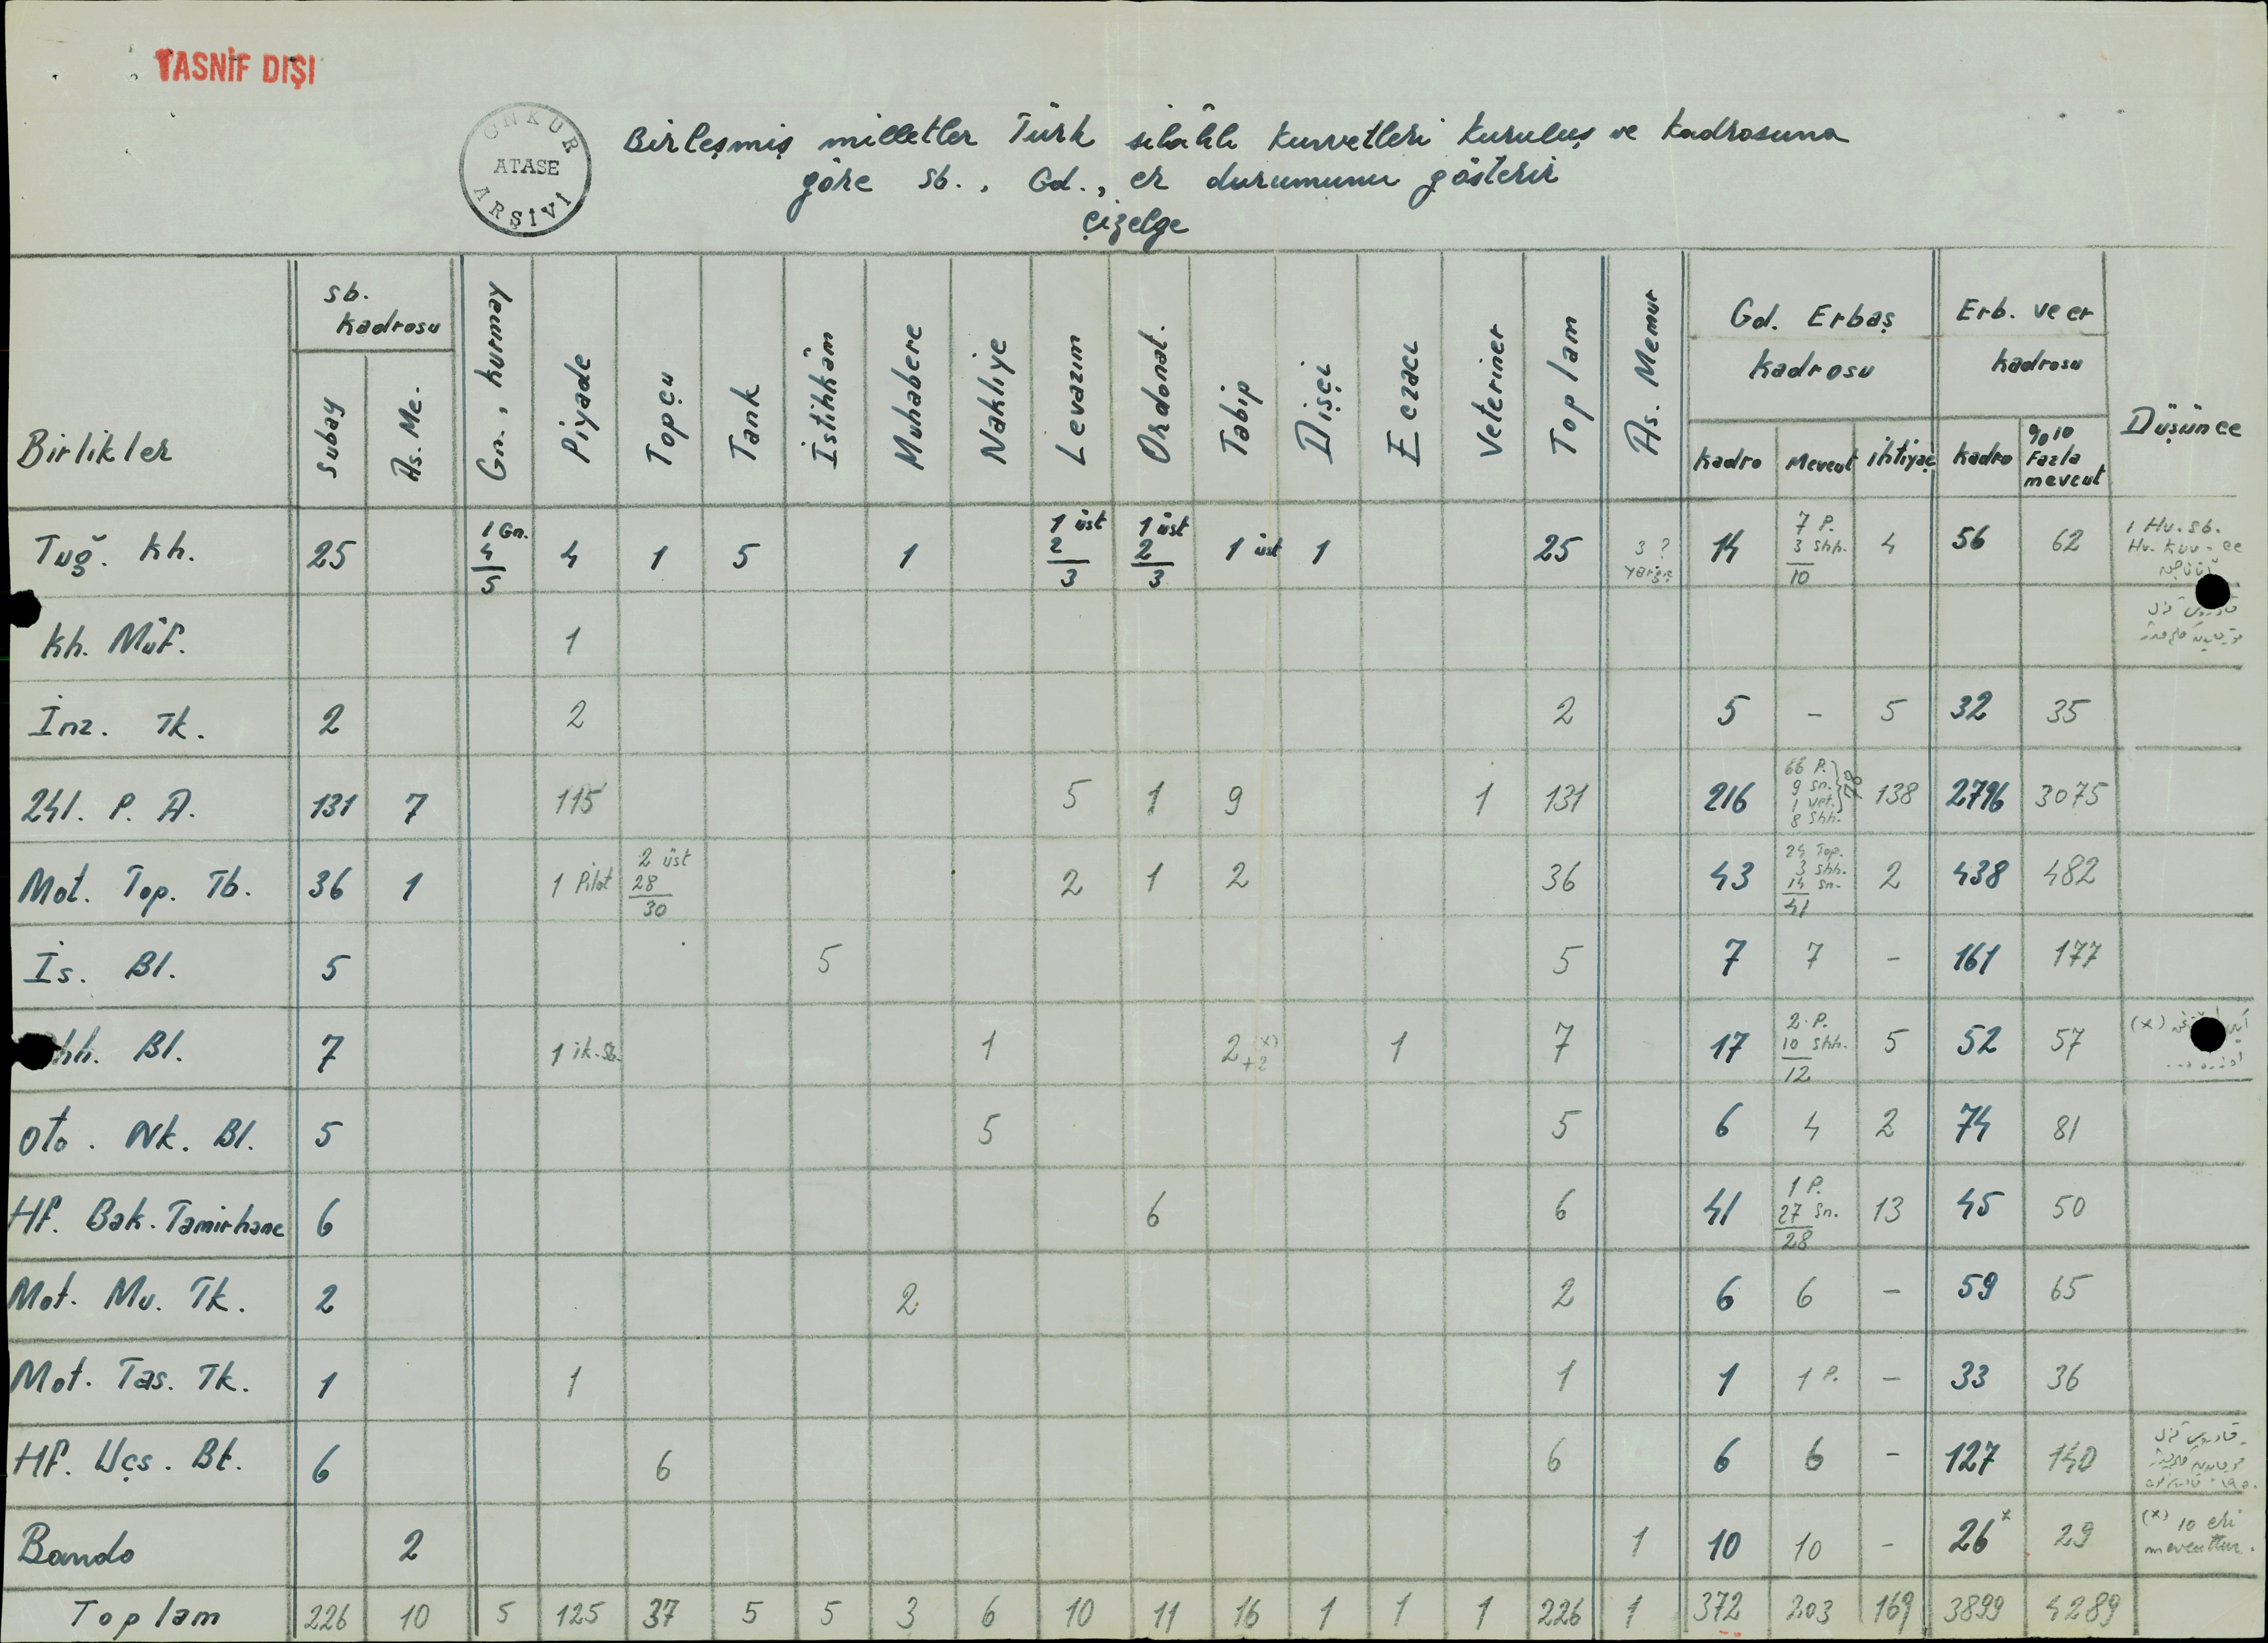 TASNİF DIŞI
GNKUR
ATASE
ARŞİVİ
Birleşmiş milletler Türk silâhlı kuvvetleri kuruluş ve kadrosuna
göre sb., Gd., er durumunu gösterir
çizelge
Birlikler
sb. kadrosu
subay
As. Me.
Gn., kurmay
Piyade
Topçu
Tank
İstihkâm
Muhabere
Nakliye
Levazım
Ordonat.
Tabip
Dişçi
Eczacı
Veteriner
Toplam
As. Memur
Gd. Erbaş
kadrosu
kadro
Mevcut
ihtiyaç
Erb. ve er
kadrosu
kadro
%10 Fazla mevcut
Düşünce
Tuğ. kh. 25 1 Gn. 4 5 4 1 5 1 1 üst 2 3 1 üst 2 3 1 üst 1 25 3 ? 14 7 P. 3 shh. 10 4 56 62 1 Hv. sb.
kh. Müf. 1
İnz. Tk. 2 2 2 5 - 5 32 35
241. P. A. 131 7 115 5 1 9 1 131 216 66 P. 9 sn. 1 vet. 8 shh. 78 138 2796 3075
Mot. Top. Tb. 36 1 1 Pilot 2 üst 28 30 2 1 2 36 43 24 Top. 3 shh. 14 sn. 41 2 438 482
İs. Bl. 5 5 5 7 7 - 161 177
hh. Bl. 7 1 ik. sb. 1 2 (x) +2 1 7 17 2 P. 10 shh. 12 5 52 57 (x)
oto. Nk. Bl. 5 5 5 6 4 2 74 81
Hf. Bak. Tamirhane 6 6 6 41 1 P. 27 sn. 28 13 45 50
Mot. Mu. Tk. 2 2 2 6 6 - 59 65
Mot. Tas. Tk. 1 1 1 1 1 P. - 33 36
Hf. Uçs. Bt. 6 6 6 6 6 - 127 140
Bando 2 1 10 10 - 26 x 29 (x) 10 eri mevcuttur.
Toplam 226 10 5 125 37 5 5 3 6 10 11 16 1 1 1 226 1 372 203 169 3899 4289